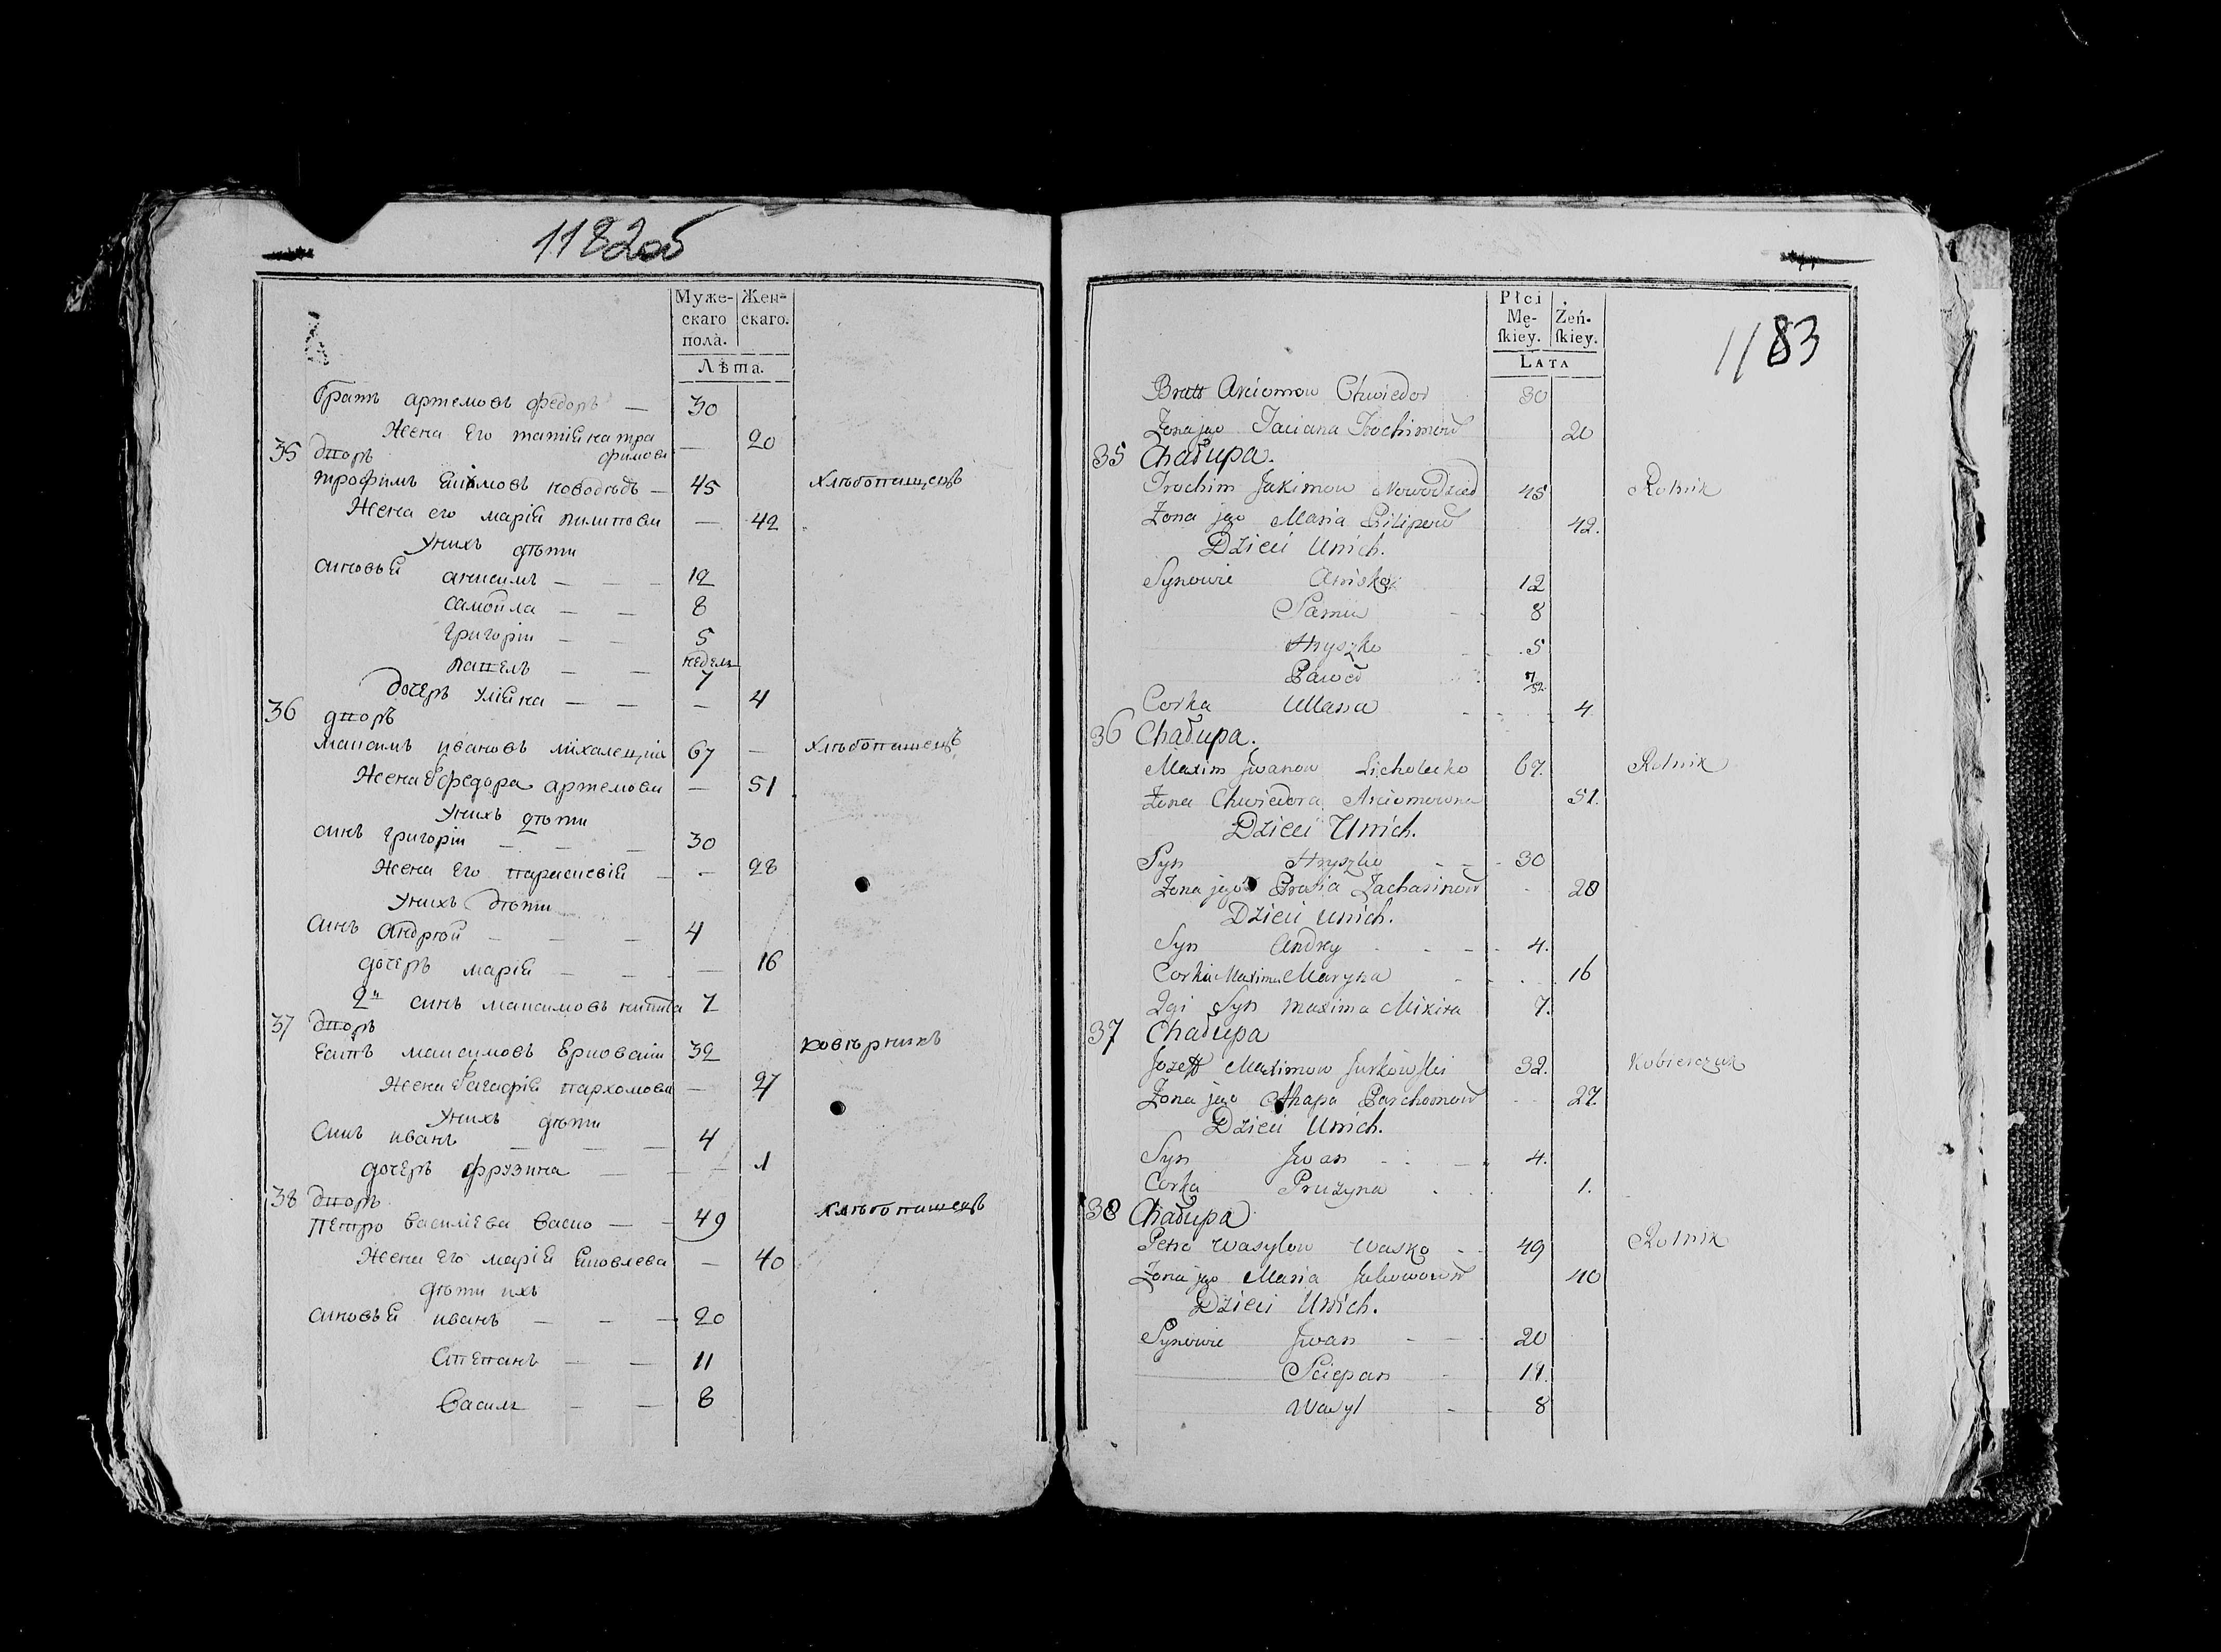 1182об
Муже- Жен-
скаго скаго.
пола.
Лѣта.
братъ артемовъ федоръ — 30
Жена его татіяна тра — 20
фимова
35 дворъ
трофимъ якимовъ новодѣдъ — 45 хлѣбопашецъ
Жена его марія пилипова — 42
у нихъ дѣти
синовья анисимъ — — — 12
самойла — — 8
григорій — — 5
павелъ — — недель 7
дочеръ уляна — — — 4
36 дворъ
максимъ ивановъ 67 — хлѣбопашецъ
Жена федора артемова — 51
у нихъ дѣти
синъ григорій — — — 30
Жена его парасковія — — 28
у нихъ дѣти
синъ андрей — — — 4
дочеръ марія — — — 16
2й синъ максимовъ никита 7
37 дворъ
максимовъ 32 ковѣрникъ
Жена агафія пархомова — 27
у нихъ дѣти
синъ иванъ — — — 4
дочеръ фрузина — — — 1
38 дворъ
Петро василева васко — — 49 хлѣбопашецъ
Жена его марія яковлева — 40
дѣти ихъ
синовья иванъ — — — 20
Степанъ — — 11
василь — — 8
1183
Płci
Mę- Żeń-
ſkiey. ſkiey.
LATA
Bratt Arciomow Chwiedor 30
Zona jego Taciana Trochimow 20
35 Chałupa.
Trochim Jakimow Nowodzied 45 Rolnik
Zona jego Maria Pilipow 42.
Dzieci Unich.
Synowie Anisko 12
Samu 8
Hryszko 5
Paweł 7/52
Corka Ullana 4
36 Chałupa.
Maxim Iwanow Licholecko 67. Rolnik
Zona Chwiedora Arciomowna 51.
Dzieci Unich.
Syn Hryszko - - 30
Zona jego Prasia Zacharinow - 28
Dzieci unich.
Syn Andrey - - - 4.
Corka Maxima Maryna 16
2gi Syn maxima Mikita 7.
37 Chałupa
Jozeff Maximow Jurkowſki 32. Kobierczuk
Zona jego Ahapa Parchomow - - 27.
Dzieci Unich.
Syn Iwan - - 4.
Corka Pruzyna 1.
38 Chałupa
Petro Wasylow Wasko - - 49 Rolnik
Zona jego Maria Jakowow 40
Dzieci Unich.
Synowie Iwan - - - 20
Sciepan - 11.
Wasyl - - 8